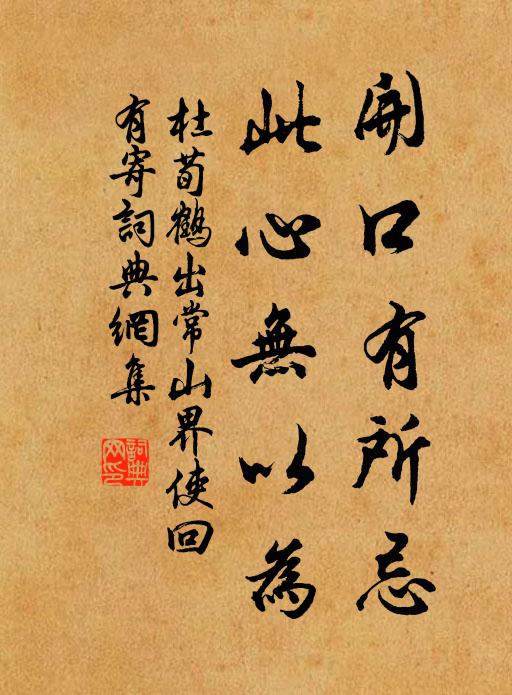 開口有所忌
此心無以為
杜荀鶴出常山界使回
有寄詞典網集
詞典
网印